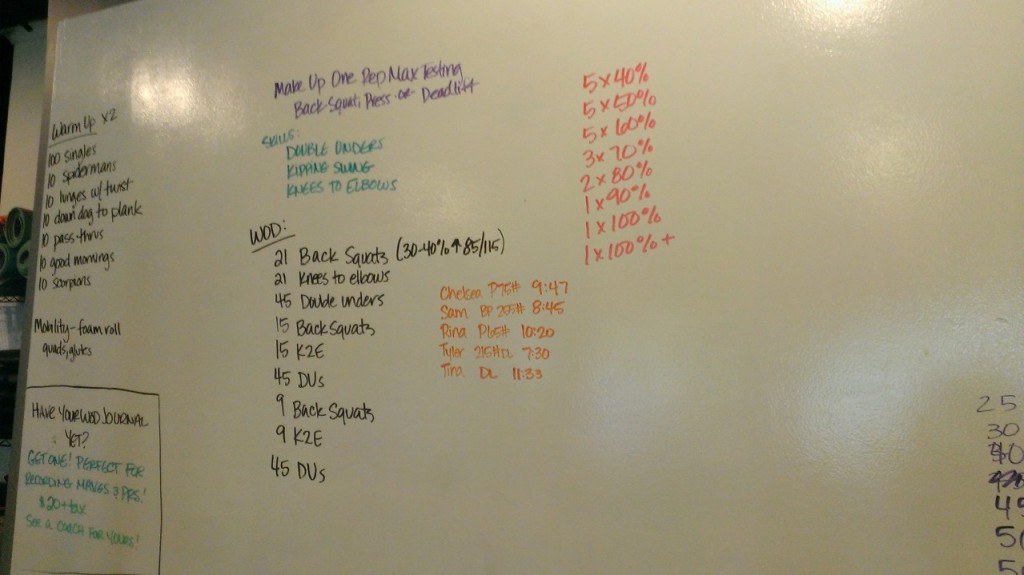 Warm Up x2
100 singles
10 spidermans
10 lunges w/ twist
10 down dog to plank
10 pass-thrus
10 good mornings
10 scorpions
Mobility-foam roll
quads, glutes
HAVE YOUR WOD JOURNAL
YET?
GET ONE! PERFECT FOR
RECORDING MAXES & PRS!
$20+tax
SEE A COACH FOR YOURS!
Make Up One Rep Max Testing
Back Squat, Press -or- Deadlift
SKILLS:
DOUBLE UNDERS
KIPPING SWING
KNEES TO ELBOWS
WOD:
21 Back Squats (30-40% ↑ 85/115)
21 knees to elbows
45 Double unders
15 Back Squats
15 K2E
45 DUs
9 Back Squats
9 K2E
45 DUs
Chelsea P75# 9:47
Sam BP 255# 8:45
Rina P65# 10:20
Tyler 215# DL 7:30
Tina DL 11:33
5 x 40%
5 x 50%
5 x 60%
3 x 70%
2 x 80%
1 x 90%
1 x 100%
1 x 100% +
25
30